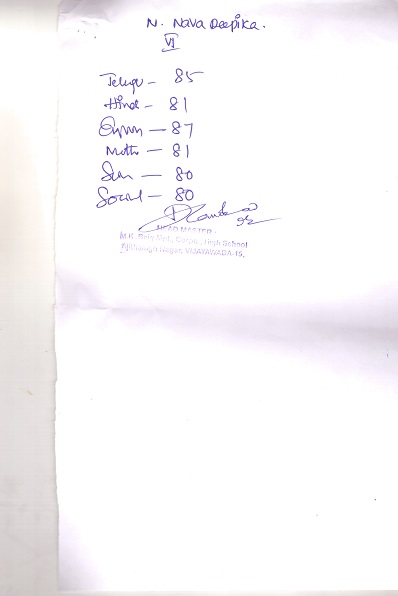 N. Nava Deepika.
VI
Telugu - 85
Hindi - 81
English - 87
Maths - 81
80
Social - 80
HEAD MASTER
M.K. Baig Mpl. Corpn., High School
Ajithsingh Nagar, VIJAYAWADA-15.